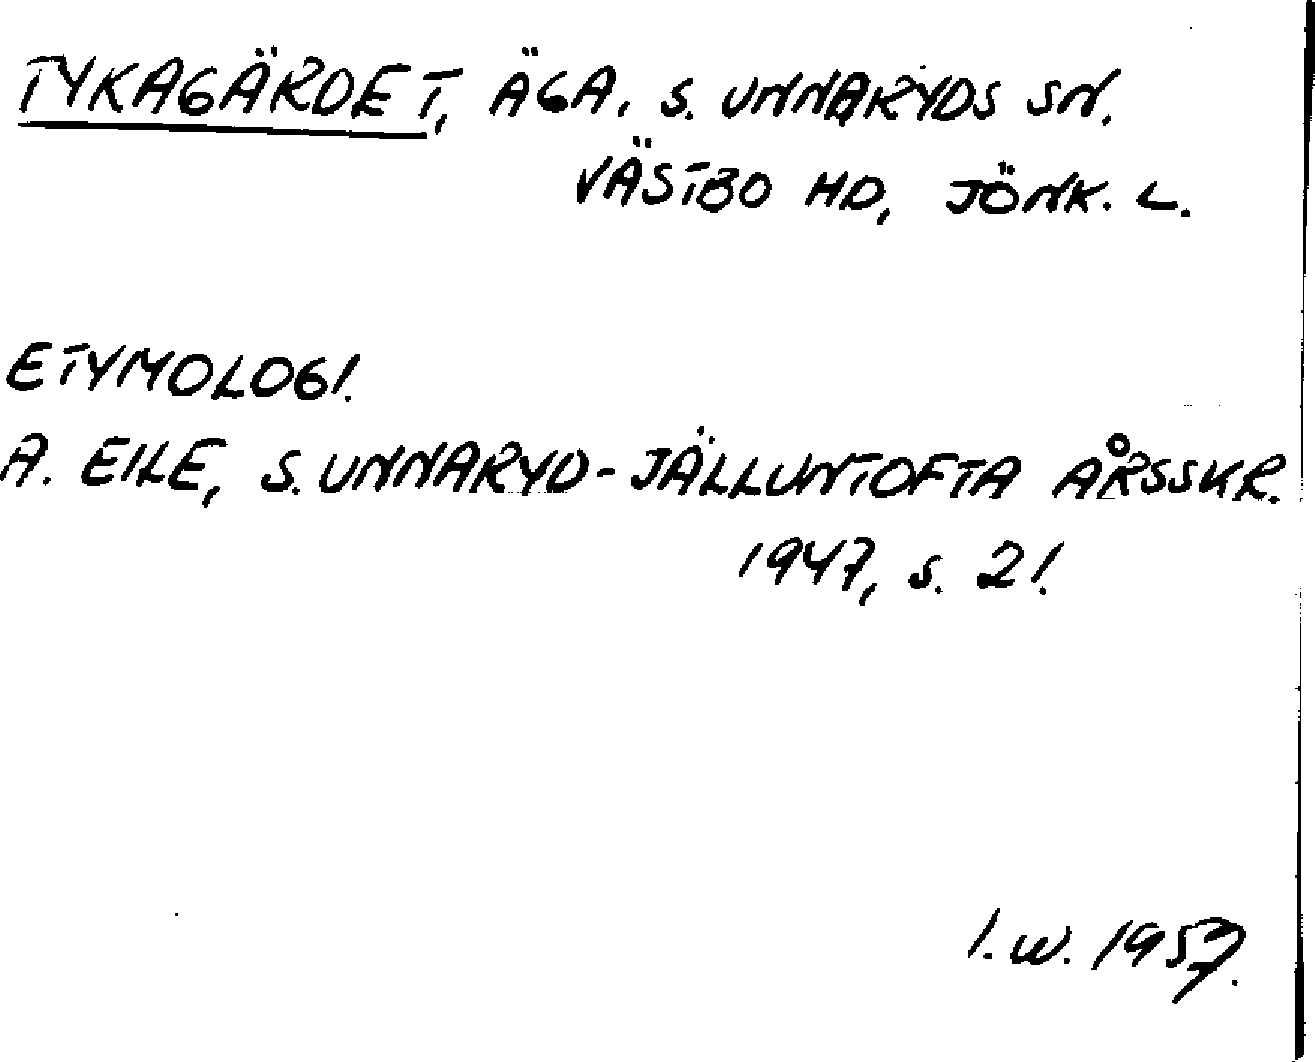 TYKAGÄRDET, ÄGA, S. UNNARYDS SN.
VÄSTBO HD, JÖNK. L.
ETYMOLOGI.
A. EILE, S. UNNARYD-JÄLLUNTOFTA ÅRSSKR.
1947, s. 21.
I. W. 1957.